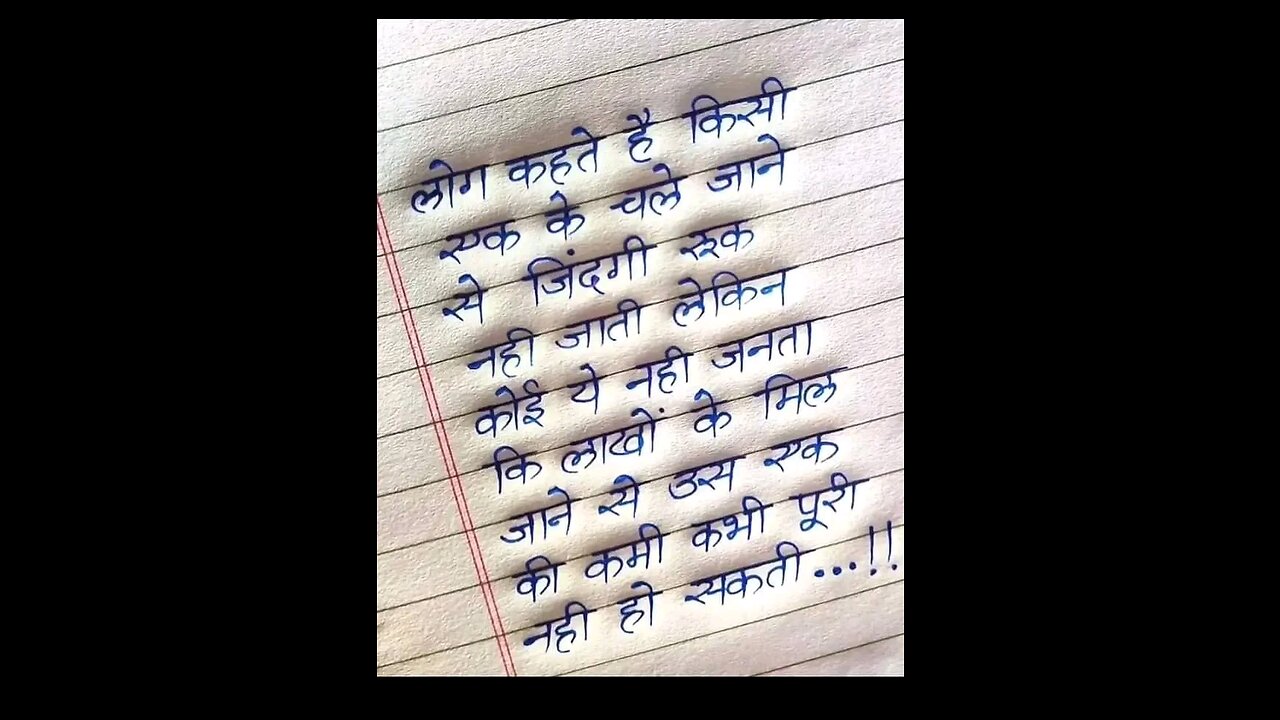 लोग कहते है किसी
एक के चले जाने
से जिंदगी रुक
नही जाती लेकिन
कोई ये नही जनता
कि लाखों के मिल
जाने से उस एक
की कमी कभी पूरी
नही हो सकती...!!